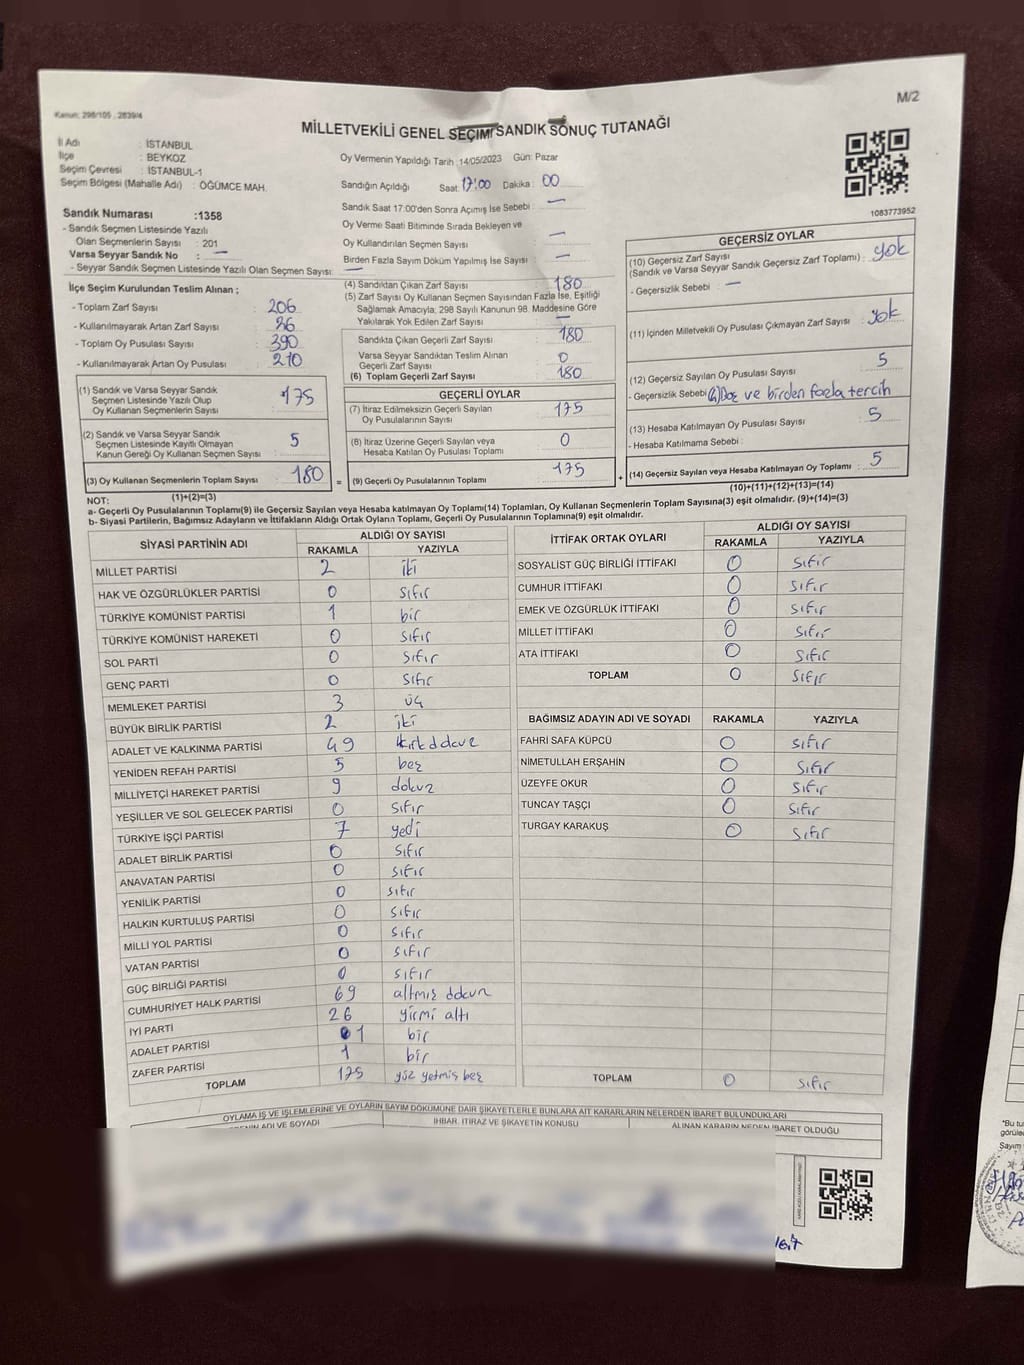 M/2
Kanun: 298/105 , 2839/4
MİLLETVEKİLİ GENEL SEÇİMİ SANDIK SONUÇ TUTANAĞI
İl Adı : İSTANBUL
İlçe : BEYKOZ
Seçim Çevresi : İSTANBUL-1
Seçim Bölgesi (Mahalle Adı) : ÖĞÜMCE MAH.
Sandık Numarası :1358
- Sandık Seçmen Listesinde Yazılı
Olan Seçmenlerin Sayısı : 201
Varsa Seyyar Sandık No : —
- Seyyar Sandık Seçmen Listesinde Yazılı Olan Seçmen Sayısı: —
Oy Vermenin Yapıldığı Tarih :14/05/2023 Gün: Pazar
Sandığın Açıldığı Saat: 17:00 Dakika : 00
Sandık Saat 17:00'den Sonra Açımış İse Sebebi : —
Oy Verme Saati Bitiminde Sırada Bekleyen ve
Oy Kullandırılan Seçmen Sayısı : —
Birden Fazla Sayım Döküm Yapılmış İse Sayısı : —
1083773952
İlçe Seçim Kurulundan Teslim Alınan ;
- Toplam Zarf Sayısı : 206
- Kullanılmayarak Artan Zarf Sayısı : 26
- Toplam Oy Pusulası Sayısı : 390
- Kullanılmayarak Artan Oy Pusulası : 210
(1) Sandık ve Varsa Seyyar Sandık
Seçmen Listesinde Yazılı Olup
Oy Kullanan Seçmenlerin Sayısı : 175
(2) Sandık ve Varsa Seyyar Sandık
Seçmen Listesinde Kayıtlı Olmayan
Kanun Gereği Oy Kullanan Seçmen Sayısı : 5
(3) Oy Kullanan Seçmenlerin Toplam Sayısı : 180
(4) Sandıktan Çıkan Zarf Sayısı : 180
(5) Zarf Sayısı Oy Kullanan Seçmen Sayısından Fazla İse, Eşitliği
Sağlamak Amacıyla; 298 Sayılı Kanunun 98. Maddesine Göre
Yakılarak Yok Edilen Zarf Sayısı : —
Sandıkta Çıkan Geçerli Zarf Sayısı : 180
Varsa Seyyar Sandıktan Teslim Alınan
Geçerli Zarf Sayısı : 0
(6) Toplam Geçerli Zarf Sayısı : 180
GEÇERLİ OYLAR
(7) İtiraz Edilmeksizin Geçerli Sayılan
Oy Pusulalarının Sayısı : 175
(8) İtiraz Üzerine Geçerli Sayılan veya
Hesaba Katılan Oy Pusulası Toplamı : 0
(9) Geçerli Oy Pusulalarının Toplamı : 175
GEÇERSİZ OYLAR
(10) Geçersiz Zarf Sayısı
(Sandık ve Varsa Seyyar Sandık Geçersiz Zarf Toplamı) : yok
- Geçersizlik Sebebi : —
(11) İçinden Milletvekili Oy Pusulası Çıkmayan Zarf Sayısı : yok
(12) Geçersiz Sayılan Oy Pusulası Sayısı : 5
- Geçersizlik Sebebi : ve birden fazla tercih
(13) Hesaba Katılmayan Oy Pusulası Sayısı : 5
- Hesaba Katılmama Sebebi :
(14) Geçersiz Sayılan veya Hesaba Katılmayan Oy Toplamı : 5
NOT: (1)+(2)=(3)
(10)+(11)+(12)+(13)=(14)
a- Geçerli Oy Pusulalarının Toplamı(9) ile Geçersiz Sayılan veya Hesaba katılmayan Oy Toplamı(14) Toplamları, Oy Kullanan Seçmenlerin Toplam Sayısına(3) eşit olmalıdır. (9)+(14)=(3)
b- Siyasi Partilerin, Bağımsız Adayların ve İttifakların Aldığı Ortak Oyların Toplamı, Geçerli Oy Pusulalarının Toplamına(9) eşit olmalıdır.
SİYASİ PARTİNİN ADI ALDIĞI OY SAYISI
RAKAMLA YAZIYLA
MİLLET PARTİSİ 2 iki
HAK VE ÖZGÜRLÜKLER PARTİSİ 0 sıfır
TÜRKİYE KOMÜNİST PARTİSİ 1 bir
TÜRKİYE KOMÜNİST HAREKETİ 0 sıfır
SOL PARTİ 0 sıfır
GENÇ PARTİ 0 sıfır
MEMLEKET PARTİSİ 3 üç
BÜYÜK BİRLİK PARTİSİ 2 iki
ADALET VE KALKINMA PARTİSİ 49 kırk dokuz
YENİDEN REFAH PARTİSİ 5 beş
MİLLİYETÇİ HAREKET PARTİSİ 9 dokuz
YEŞİLLER VE SOL GELECEK PARTİSİ 0 sıfır
TÜRKİYE İŞÇİ PARTİSİ 7 yedi
ADALET BİRLİK PARTİSİ 0 sıfır
ANAVATAN PARTİSİ 0 sıfır
YENİLİK PARTİSİ 0 sıfır
HALKIN KURTULUŞ PARTİSİ 0 sıfır
MİLLİ YOL PARTİSİ 0 sıfır
VATAN PARTİSİ 0 sıfır
GÜÇ BİRLİĞİ PARTİSİ 0 sıfır
CUMHURİYET HALK PARTİSİ 69 altmış dokuz
İYİ PARTİ 26 yirmi altı
ADALET PARTİSİ 1 bir
ZAFER PARTİSİ 1 bir
TOPLAM 175 yüz yetmiş beş
İTTİFAK ORTAK OYLARI ALDIĞI OY SAYISI
RAKAMLA YAZIYLA
SOSYALİST GÜÇ BİRLİĞİ İTTİFAKI 0 sıfır
CUMHUR İTTİFAKI 0 sıfır
EMEK VE ÖZGÜRLÜK İTTİFAKI 0 sıfır
MİLLET İTTİFAKI 0 sıfır
ATA İTTİFAKI 0 sıfır
TOPLAM 0 sıfır
BAĞIMSIZ ADAYIN ADI VE SOYADI RAKAMLA YAZIYLA
FAHRİ SAFA KÜPCÜ 0 sıfır
NİMETULLAH ERŞAHİN 0 sıfır
ÜZEYFE OKUR 0 sıfır
TUNCAY TAŞÇI 0 sıfır
TURGAY KARAKUŞ 0 sıfır
TOPLAM 0 sıfır
OYLAMA İŞ VE İŞLEMLERİNE VE OYLARIN SAYIM DÖKÜMÜNE DAİR ŞİKAYETLERLE BUNLARA AİT KARARLARIN NELERDEN İBARET BULUNDUKLARI
ADI VE SOYADI İHBAR, İTİRAZ VE ŞİKAYETİN KONUSU ALINAN KARARIN NEDEN İBARET OLDUĞU